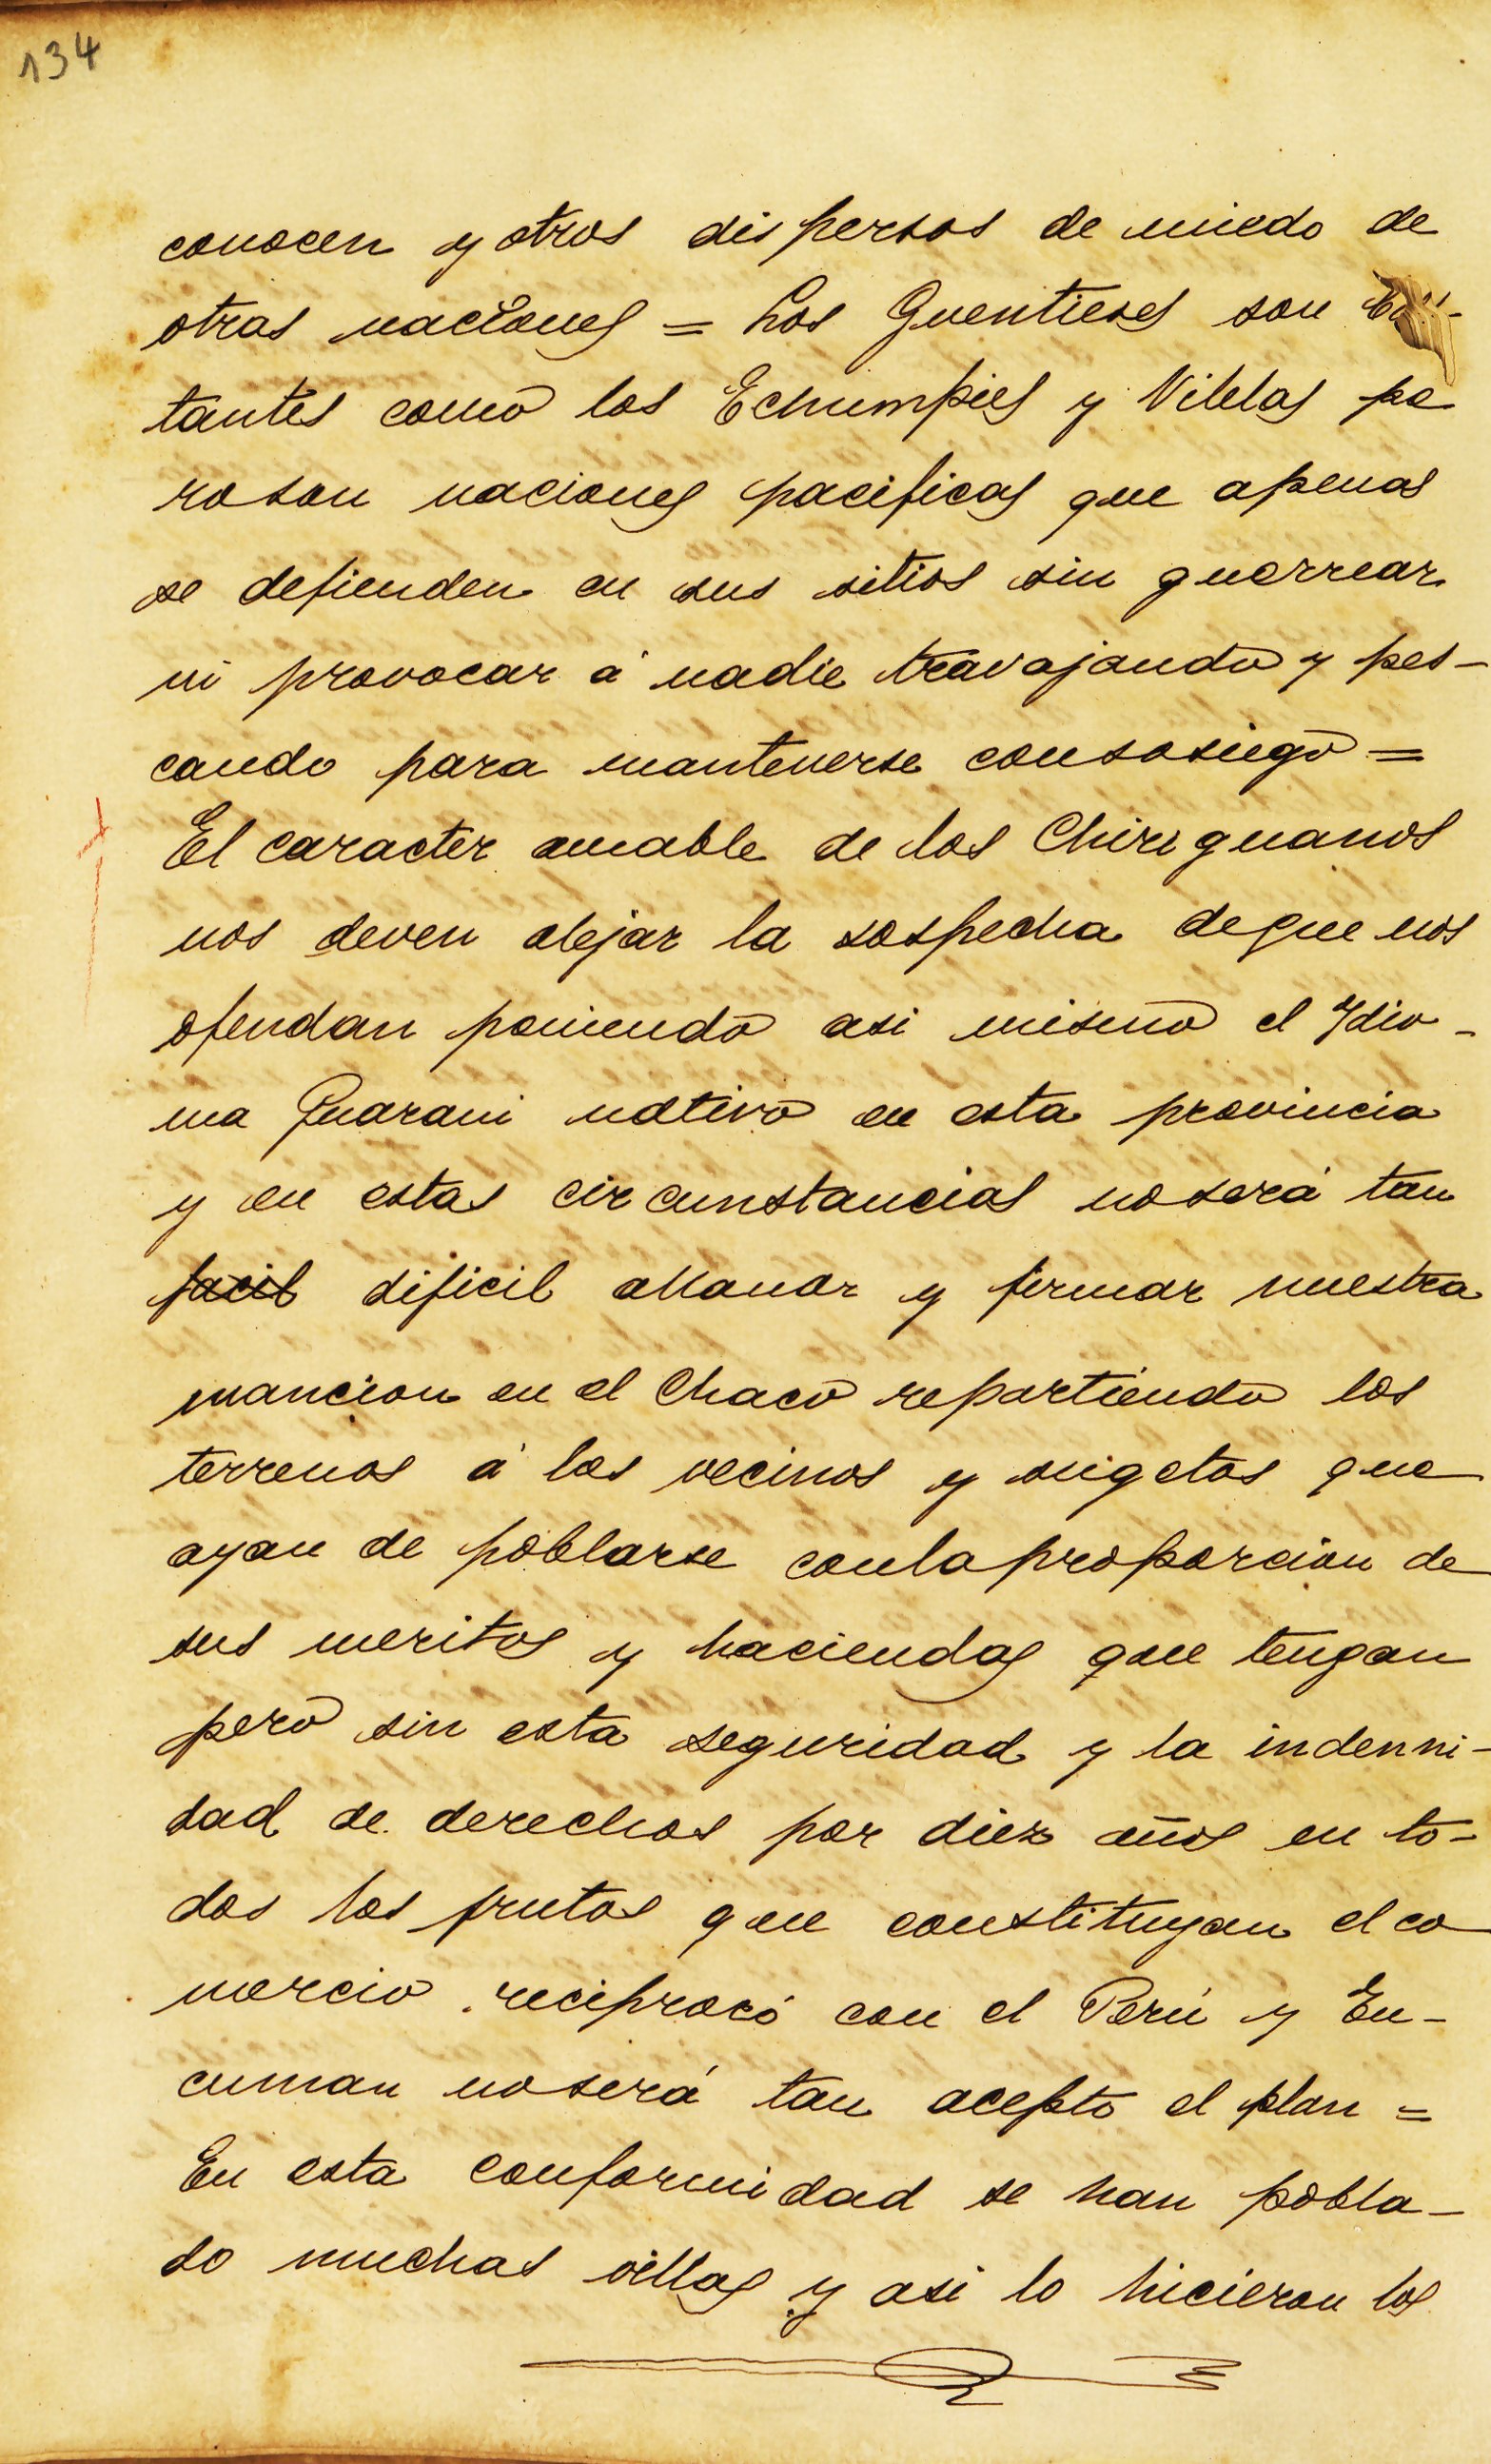 134
conocen y otros dispersos de miedo de
otras naciones = Los Guentieses son
tantes como los Echumpies y Vilelas pe
roson naciones pacificas que apenas
se defienden en sus sitios sin guerrear
ni provocar á nadie travajando y pes-
cando para mantenerse consosiego =
El caracter amable de los Chiriguanos
nos deven alejar la sospecha deque nos
ofendan poniendo asi mismo el Ydio-
ma Guarani nativo en esta provincia
y en estas circunstancias noserá tan
facil dificil allanar y firmar nuestra
mancion en el Chaco repartiendo los
terrenos á los vecinos y sugetos que
ayan de poblarse conlaproporcion de
sus meritos y haciendas que tengan
pero sin esta seguridad y la indenni-
dad de derechos por diez años en to-
dos los frutos que constituyan el co
mercio reciprocó con el Perú y Eu-
cuman noserá tan acepto el plan =
En esta conformidad se han pobla-
do muchas villas y asi lo hicieron los